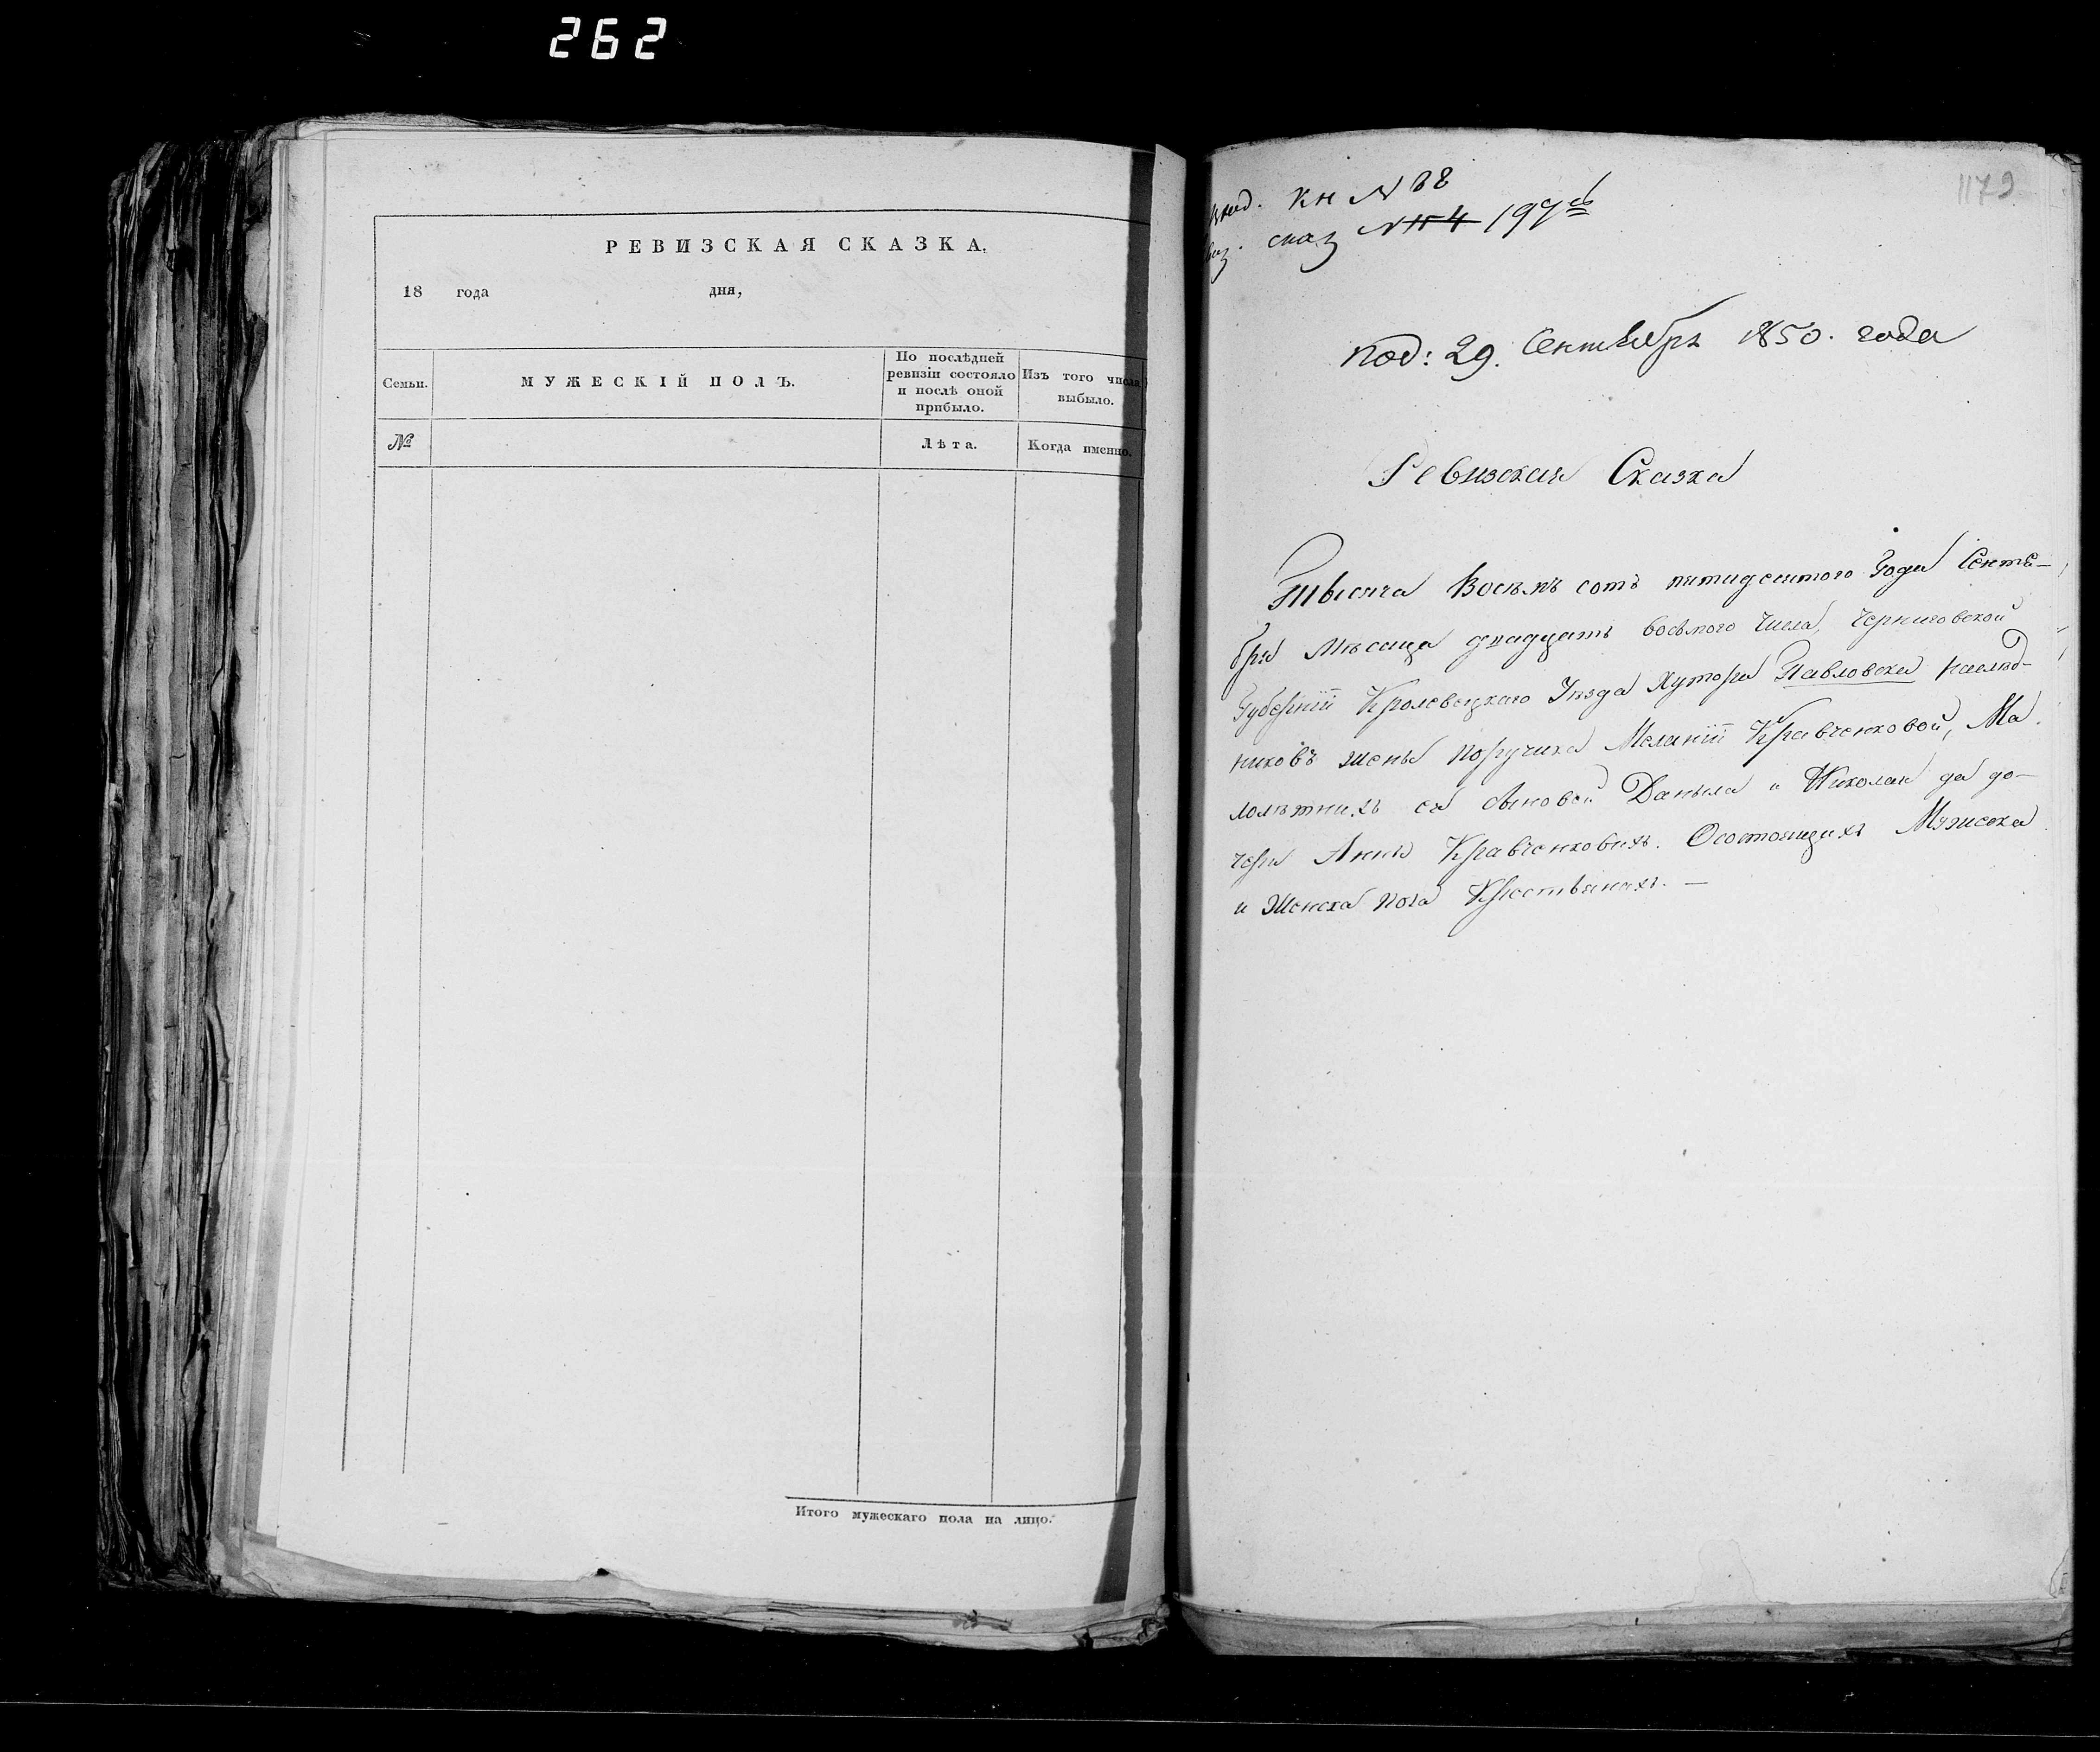 262
РЕВИЗСКАЯ СКАЗКА.
18 года дня,
Семьи.
МУЖЕСКІЙ ПОЛЪ.
По послѣдней
ревизіи состояло
и послѣ оной
прибыло.
Изъ того числа
выбыло.
№
Лѣта.
Когда именно.
Итого мужескаго пола на лицо.
1179
кн № 88
сказ № 114 197
Под: 29. Сентября 1850. года
Ревизская Сказка
Тысяча Восемъ сотъ пятидесятого Года Сентя-
бря Мѣсяца двадцать восьмого Числа, Черниговской
Губерніи Кролевецкаго Уѣзда Хутора Павловска наслѣд-
никовъ жены Поручика Меланіи Кравченковой, Ма
лолѣтнихъ ея сыновей Данила и Николая да до-
чери Анны Кравченковихъ. О состоящихъ Мужеска
и Женска Пола Крестьянахъ. —